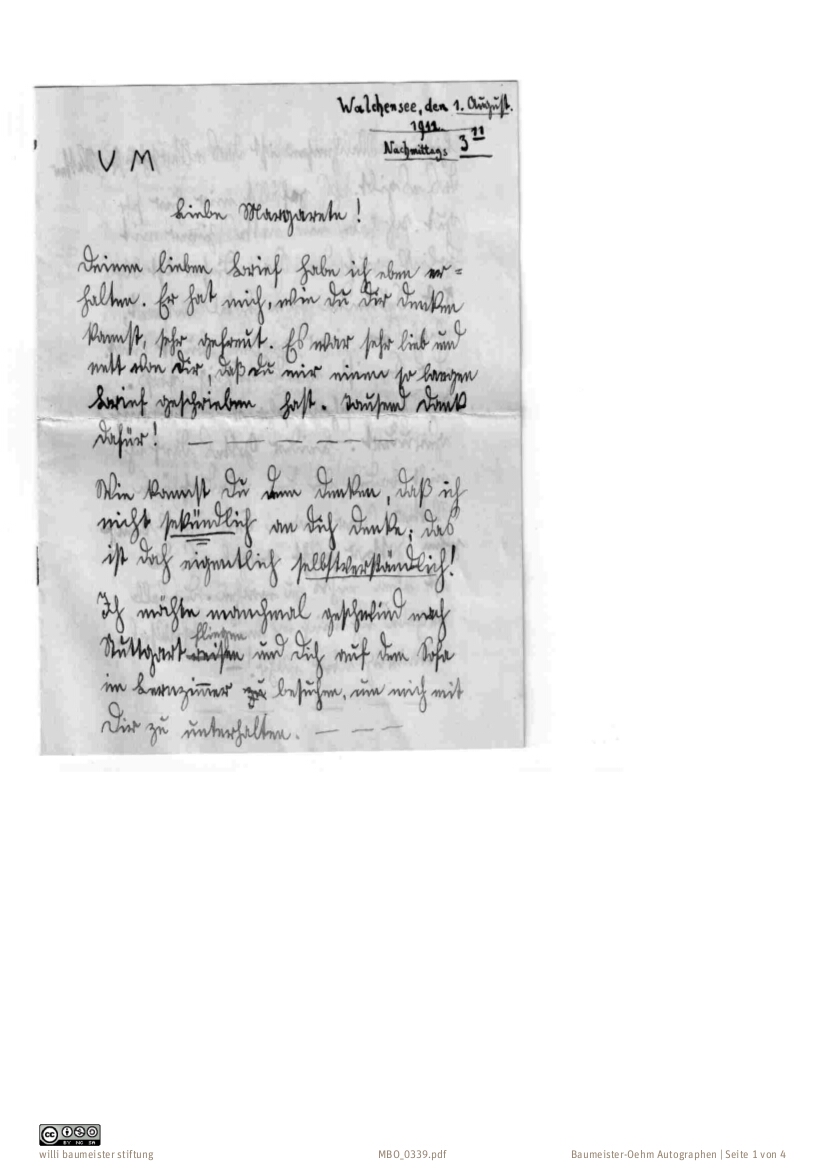 Walchensee, den 1. August.
1911.
Nachmittags 3 11
V M
Liebe Margarete!
Deinen lieben Brief habe ich eben er=
halten. Er hat mich, wie du Dir denken
kannst, sehr gefreut. Es war sehr lieb und
nett von Dir, daß du mir einen so langen
Brief geschrieben hast. Tausend Dank
dafür! — — — — — —
Wie kannst Du denn denken, daß ich
nicht sekündlich an Dich denke; das
ist doch eigentlich selbstverständlich!
Ich möchte manchmal geschwind nach
fliegen
Stuttgart reisen und Dich auf dem Sofa
im Lernzimmer zu besuchen, um mich mit
Dir zu unterhalten. — — —
CC BY NC SA
willi baumeister stiftung
MBO_0339.pdf
Baumeister-Oehm Autographen | Seite 1 von 4